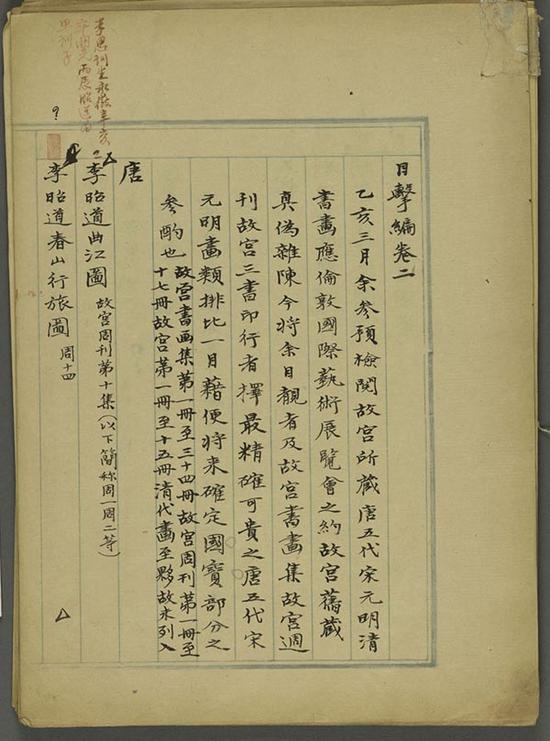 目擊編卷二
乙亥三月余參預檢閱故宮所藏唐五代宋元明清
書畫應倫敦國際藝術展覽會之約故宮舊藏
真偽雜陳今將余目觀者及故宮書畫集故宮週
刊故宮三書印行者擇最精確可貴之唐五代宋
元明畫類排比一目藉便將來確定國寶部分之
參酌也 故宮書画集第一冊至三十四冊故宮周刊第一冊至
十七冊故宮第一冊至十五冊清代畫至夥故未列入
唐
李昭道曲江圖 故宮周刊第十集(以下簡称周一周二等)
李昭道春山行旅圖 周十四
李思訓生永徽辛亥
卒開元丙辰昭道為
思訓子
?